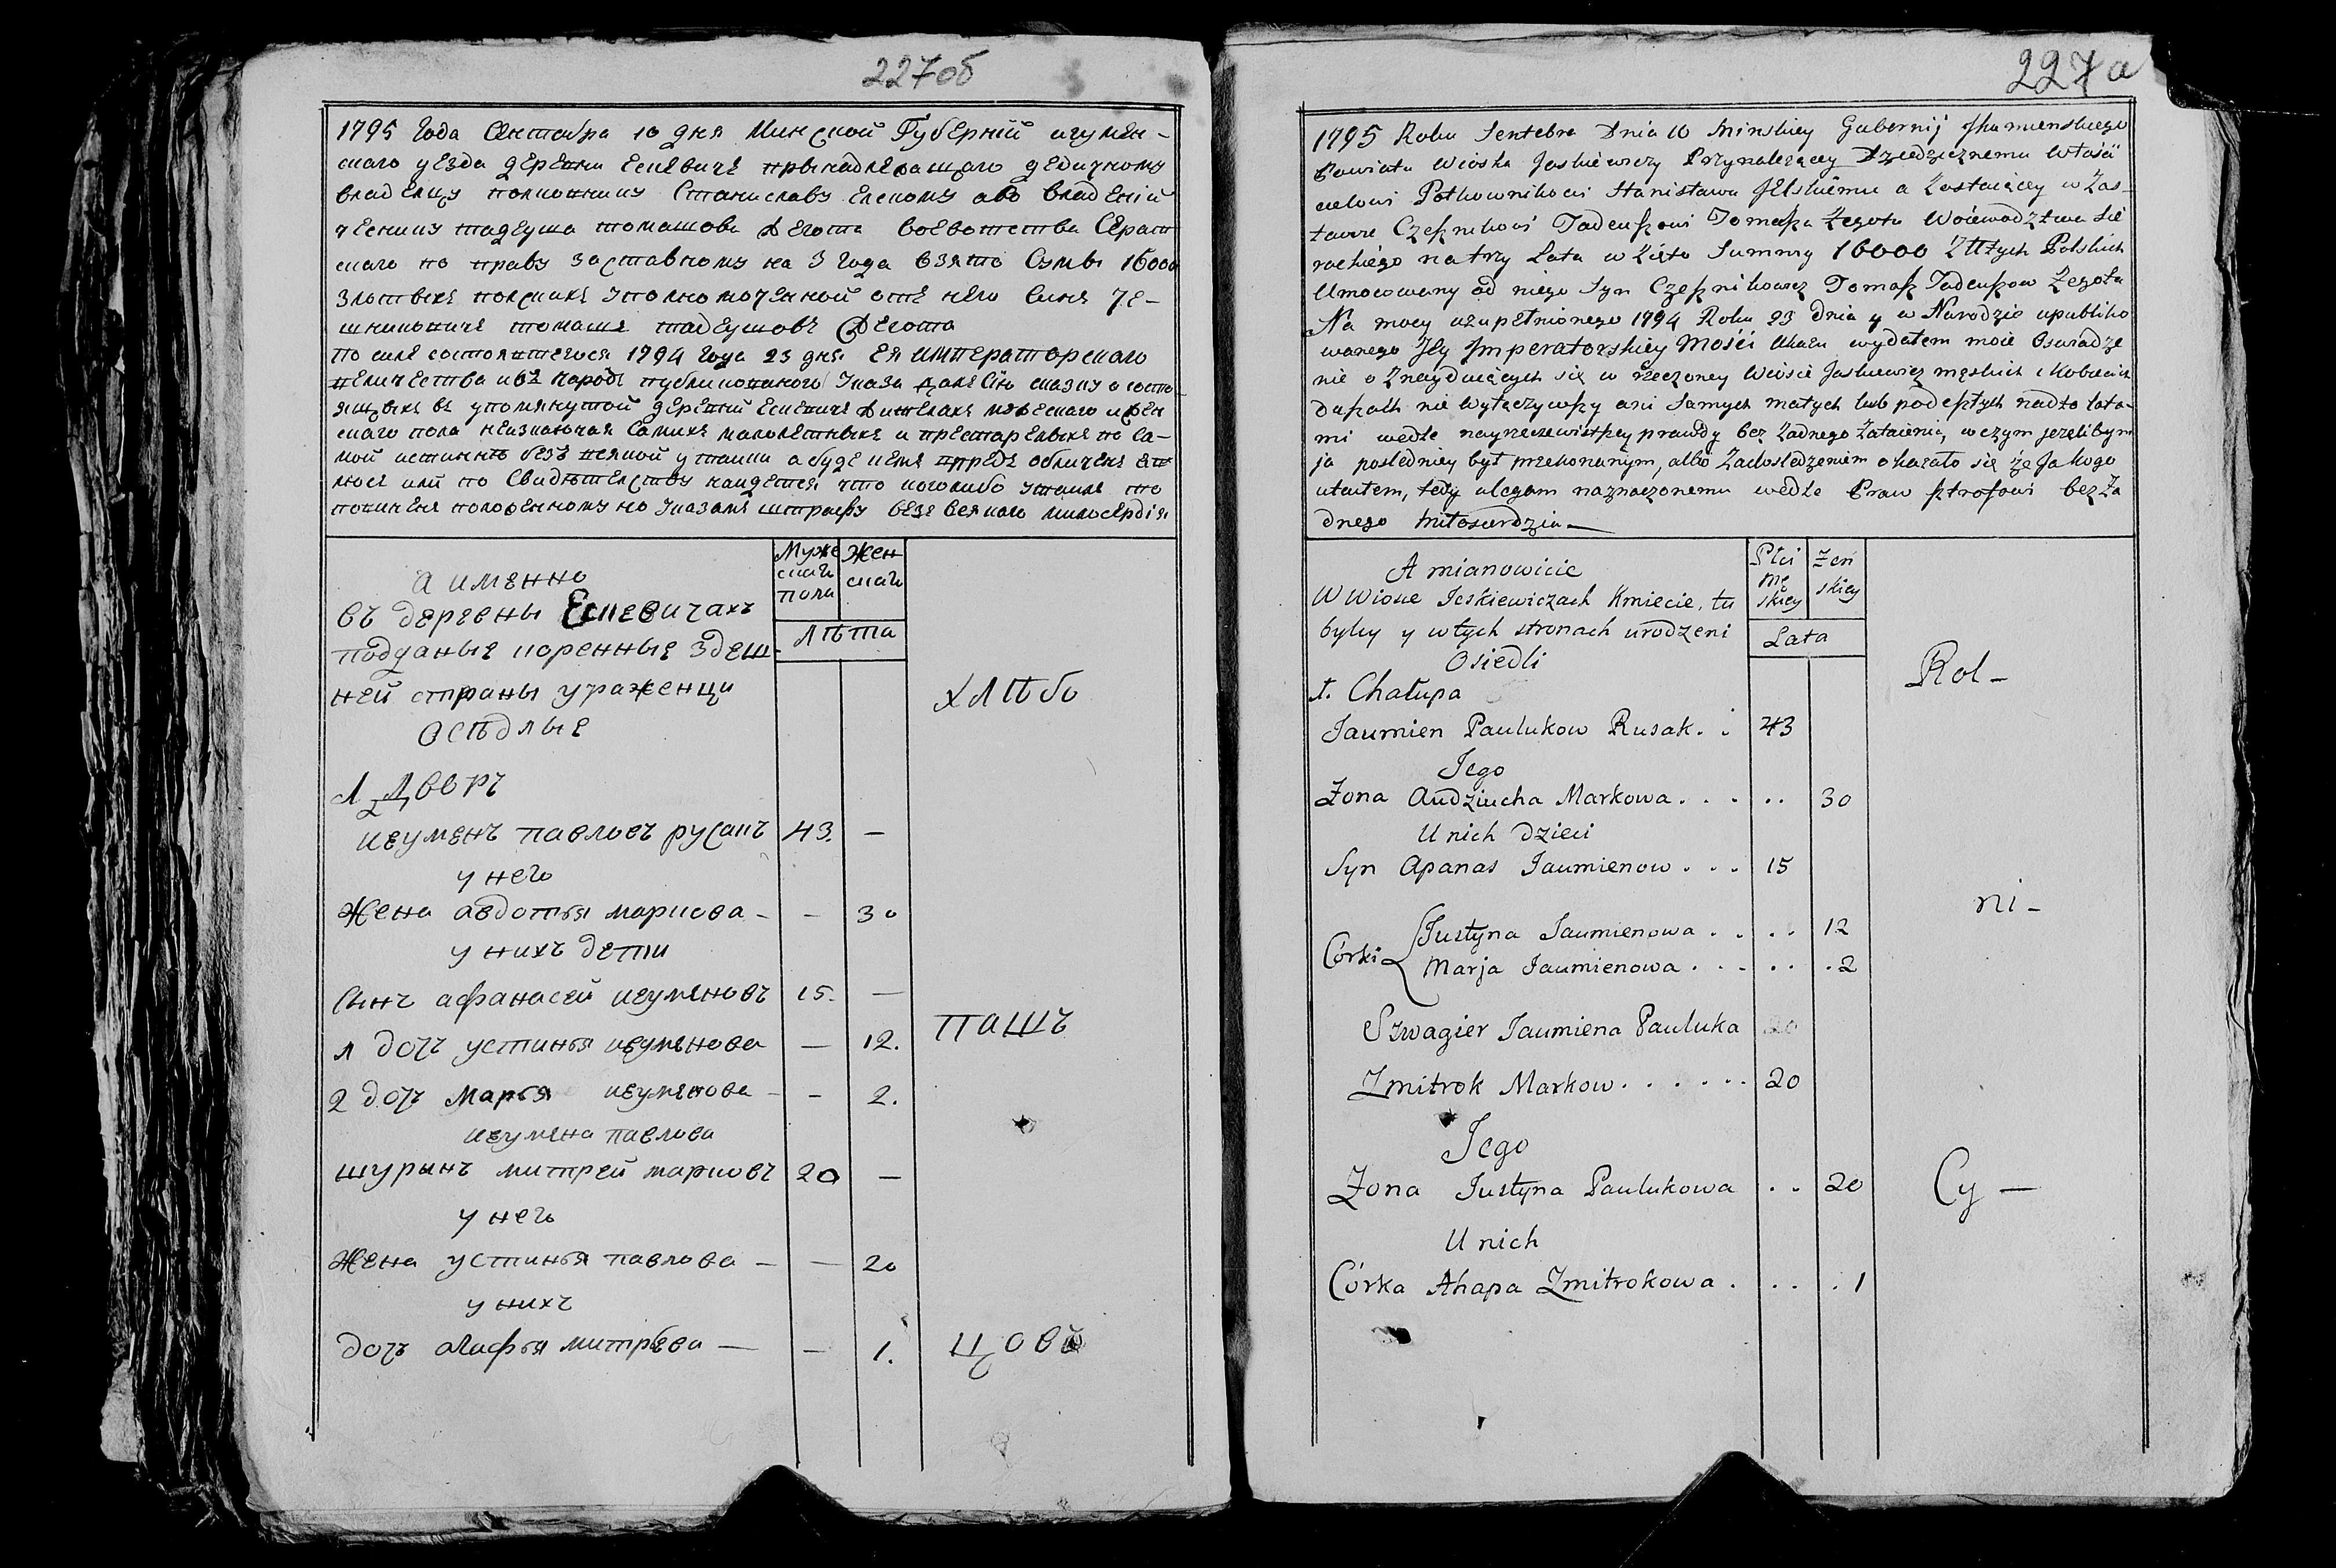 227об
1795 Года Сентабра 10 дня Минской Губерній игумен-
скаго уезда деревни Ескевичъ принадлежащаго дедичному
владелцу полковнику Станиславу Елскому а во владеній
чесника тадеуша томашова Жегота воевотства Серат
скаго по праву заставному на 3 года взято Сумы 16000
злотыхъ полскихъ уполномоченной отъ него Синъ че-
шниковичъ томашъ тадеушовъ Жегота
по силе состоявшегося 1794 Года 23 дня Ея императорскаго
величества и въ народъ публикованного указа далъ сію сказку о состо
ящихъ въ упомянутой деревни Ескевичъ жителахъ мужескаго и жен
скаго пола неизключая самихъ малолетныхъ и престарелыхъ по са-
мой истинне безъ всякой утайки а буде кемъ
или по Свидетелству найдется что коголибо утаилъ то
повиненъ положенному по указамъ штрафу безъ всякаго милосердія
а именно
въ деревны Ескевичахъ
подданые коренные здеш-
ней страны ураженци
осѣдлые
Муже скаго пола
Жен скаго
Лѣта
1 Дворъ
хлѣбо
иеуменъ павловъ русакъ 43. —
у него
Жена авдотья маркова - - 30
у нихъ дети
Сынъ афанасей иеуменовъ 15. —
1 дочъ устинья иеуменова — 12.
пашъ
2 дочъ Марья иеуменова - - 2.
иеумена павлова
шурынъ митрей марковъ 20 —
у него
Жена устинья павлова - — 20
у нихъ
дочъ агафья митрева — — 1.
цовъ
227 а
1795 Roku Sentebra Dnia 10 Minskiey Gubernij Jhumenskiego
Powiatu Wioska Jeskiewiczy Przynależącey Dziedzicznemu Właści
cielowi Połkownikowi Stanisławu Jelskiemu a Zostaiącey w Zas-
tawie Czesznikowi Tadeuszowi Tomasza Zegota Woiewodztwa Sie
rackiego na trzy Lata w Zięto Summy 16000 Złłtych Polskich
Umocowany od niego Syn Czesznikowicz Tomasz Tadeuszow Zegota
Na mocy uzupełnionego 1794 Roku 23 dnia y w Narodzie upubliko
wanego Jey Imperatorskiey Mości Ukazu wydałem moie Oswiadze
nie o Znayduiących się w rzeczoney Wiosce Jeskiewicz męskich i Kobiecich
duszach nie Wyłączywszy ani Samych małych lub podeszłych nadto lata-
mi wedle nayrzeczewistszey prawdy bez Zadnego Zataienia, w czym jezelibym
ja posledniey był przekonanym, albo Zadosledzeniem okazało się że Ja kogo
utaiłem, tedy ulegam naznaczonemu wedle Praw sztrofowi bez Za
dnego miłosierdzia—
A mianowicie
W Wiosce Jeskiewiczach Kmiecie, tu
byley y w tych stronach urodzeni
Osiedli
Płci mę skiey
Zeń skiey
Lata
1. Chałupa
Rol-
Jaumien Paulukow Rusak. . 43
Jego
Zona Audziucha Markowa. . . . . 30
U nich dzieci
Syn Apanas Jaumienow . . . 15
ni-
Córki Justyna Jaumienowa . . . . 12
Marja Jaumienowa . . . . . . 2
Szwagier Jaumiena Pauluka 20
Zmitrok Markow. . . . . . 20
Jego
Zona Justyna Paulukowa . . 20
Cy —
U nich
Córka Ahapa Zmitrokowa . . . . 1